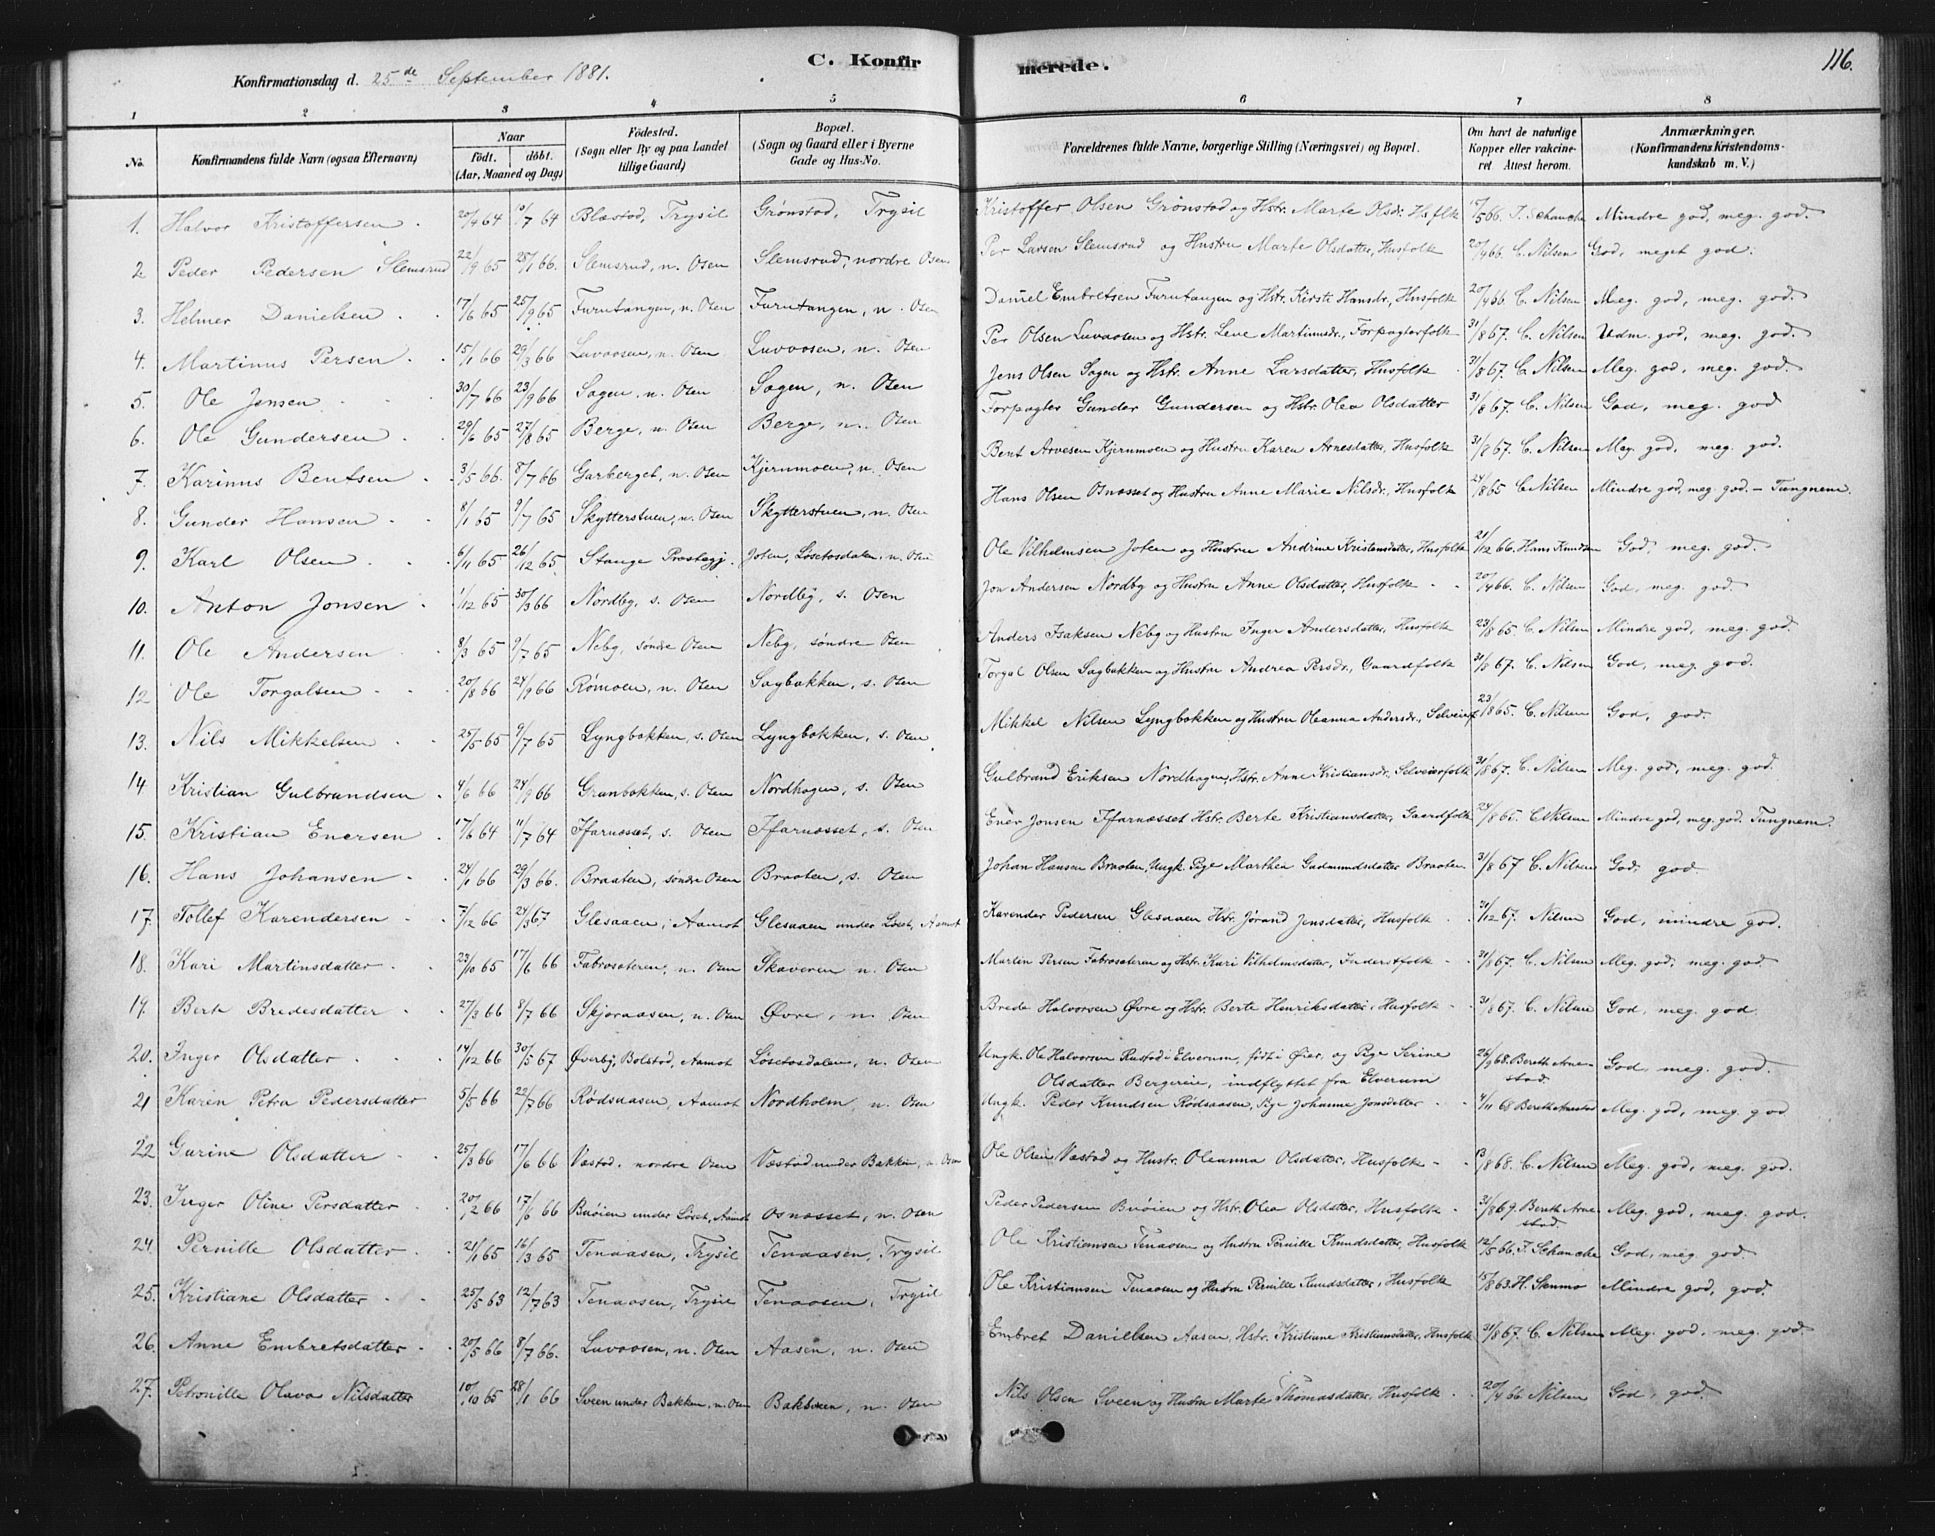 C. Konfirmerede.
116.
Konfirmationsdag d. 25de September 1881.
1 2 3 4 5 6 7 8
No. Konfirmandens fulde Navn (ogsaa Efternavn) Naar født. døbt. (Aar, Moaned og Dag) Fødested. (Sogn eller By og paa Landet tillige Gaard) Bopæl. (Sogn og Gaard eller i Byerne Gade og Hus-No. Forældrenes fulde Navne, borgerlige Stilling (Næringsvei) og Bopæl. Om havt de naturlige Kopper eller vakcineret Attest herom. Anmærkninger. (Konfirmandens Kristendomskundskab m. V.)
1. Halvor Kristoffersen 20/4 64 10/7 64 Blæstad, Trysil Grønstad, Trysil Kristoffer Olsen Grønstad og Hstr. Marte Olsdr. Hsflk 17/5 66. J. Schanche Mindre god, meg. god.
2 Peder Pedersen Slemsrud 22/9 65 25/1 66. Slemsrud, n. Osen Slemsrud, nordre Osen Per Larsen Slemsrud og Hustru Marte Olsdatter, Husfolk 20/4 66. C. Nilsen God, meget god.
3. Helmer Danielsen 17/6 65 25/9 65 Furutangen, n. Osen Furutangen, n. Osen Daniel Embretsen Furutangen og Hstr. Kirsti Hansdr., Husfolk 20/4 66. C. Nilsen Meg. god, meg. god.
4. Martinus Persen 15/1 66 29/3 66 Luvaasen, n. Osen Luvaasen, n. Osen Per Olsen Luvaasen og Hstr. Lene Martinusdr., Forpagterfolk 31/8 67. C. Nilsen Udm. god, meg. god.
5. Ole Jensen 30/7 66 23/9 66 Sagen, n. Osen Sagen, n. Osen Jens Olsen Sagen og Hstr. Anne Larsdatter, Husfolk 31/8 67. C. Nilsen Meg. god, meg. god.
6. Ole Gundersen 29/6 65 27/8 65 Berge, n. Osen Berge, n. Osen Forpagter Gunder Gundersen og Hstr. Olea Olsdatter 31/8 67. C. Nilsen God, meg. god
7. Karinus Bentsen 3/5 66. 8/7 66 Garberget, n. Osen Kjernmoen, n. Osen Bent Arvesen Kjernmoen og Hustru Karen Arnesdatter, Husfolk 31/8 67. C. Nilsen Meg. god, meg. god.
8. Gunder Hansen 8/1 65 9/7 65 Skytterstuen, n. Osen Skytterstuen, n. Osen Hans Olsen Osnæsset og Hustru Anne Marie Nilsdr., Husfolk 24/8 65 C. Nilsen Mindre god, meg. god. – Tungnem.
9. Karl Olsen 6/11 65 26/12 65. Stange Præstegj. Joten, Løsetosdalen, n. Osen Ole Vilhelmsen Joten og Hustru Andrine Kristensdatter, Husfolk 21/12 66. Hans Knudsen God, meg. god.
10. Anton Jonsen 1/12 65 30/3 66 Nordby, s. Osen Nordby, s. Osen Jon Andersen Nordby og Hustru Anne Olsdatter, Husfolk 20/4 66. C. Nilsen God, meg. god.
11. Ole Andersen 8/3 65 9/7 65 Neby, søndre Osen Neby, søndre Osen Anders Isaksen Neby og Hustru Inger Andersdatter, Husfolk 23/8 65. C. Nilsen Mindre god, meg. god.
12 Ole Torgalsen 20/8 66 24/9 66 Rømoen, n. Osen Sagbakken, s. Osen Torgal Olsen Sagbakken og Hustru Andrea Persdr., Gaardfolk 31/8 67. C. Nilsen God, meg. god.
13. Nils Mikkelsen 25/5 65 9/7 65 Lyngbakken, s. Osen Lyngbakken, s. Osen Mikkel Nilsen Lyngbakken og Hustru Oleanna Andersdr., Selveierf 23/8 65. C. Nilsen God, god.
14 Kristian Gulbrandsen 4/6 66 24/9 66 Granbakken, s. Osen Nordhagen, s. Osen Gulbrand Eriksen Nordhagen, Hstr. Anne Kristiansdr., Selveierfolk 31/8 67. C. Nilsen Meg. god, meg. god.
15. Kristian Enersen 17/6 64 11/7 64 Ifarnæsset, s. Osen Ifarnæsset, s. Osen Ener Jonsen Ifarnæsset Hstr. Berte Kristiansdatter, Gaardfolk 24/8 65. C. Nilsen Mindre god, meg. god. Tungnem.
16. Hans Johansen 24/1 66 29/3 66. Braaten, søndre Osen Braaten, s. Osen Johan Hansen Braaten, Ungk. Pige Marthea Gudmundsdatter Braaten 31/8 67 C. Nilsen God, god
17. Tollef Karendersen 7/12 66 24/3 67 Glesaaen, Aamot Glesaaen under Løset, Aamot Karender Pedersen Glesaaen Hstr. Jørand Jensdatter, Husfolk 31/12 67. Nilsen God, mindre god.
18. Kari Martinsdatter 23/10 65 17/6 66 Fabrosæteren, n. Osen Skaveren n. Osen Martin Persen Fabrosæteren og Hstr. Kari Vilhelmsdatter, Inderstfolk 31/8 67. C. Nilsen Meg. god, meg. god
19. Berte Bredesdatter 27/3 66 8/7 66 Skjøraasen, n. Osen Øvre, n. Osen Brede Halvorsen Øvre og Hstr. Berte Henriksdatter, Husfolk 31/8 67. C. Nilsen God, meg. god
20. Inger Olsdatter 14/12 66 30/5 67 Øverby, Bolstad, Aamot Løsetosdalen, n. Osen Ungk. Ole Halvorsen Rustad i Elverum, født i Øier, og Pige Serine Olsdatter Bergereie, indflyttet fra Elverum 26/9 68. Bereth Arnestad. God, meg. god.
21 Karen Petra Pedersdatter 5/5 66 22/7 66 Rødsaasen, Aamot Nordholm n. Osen Ungk. Peder Knudsen Rødsaasen, Pge Johanne Jonsdatter 4/11 68 Bereth Arnestad Meg. god, meg. god
22 Gurine Olsdatter 25/3 66 17/6 66 Væstad, nordre Osen Væstad under Bakken, n. Osen Ole Olsen Væstad og Hustr. Oleanna Olsdatter, Husfolk 13/8 68. C. Nilsen Meg. god, meg. god.
23. Inger Oline Persdatter 20/2 66 17/6 66 Buøien under Løset, Aamot Osnæsset, n. Osen Peder Pedersen Buøien og Hstr. Olea Olsdatter, Husfolk 31/8 69. Bereth Arnestad. Meg. god, meg. god.
24. Pernille Olsdatter 21/1 65 16/3 65 Tenaasen, Trysil Tenaasen, Trysil Ole Kristiansen Tenaasen og Hustru Pernille Knudsdatter, Husfolk 12/5 66. J. Schanche God, meg. god
25. Kristiane Olsdatter 25/5 63 12/7 63 Tenaasen, Trysil Tenaasen, Trysil Ole Kristiansen Tenaasen og Hustru Pernille Knudsdatter, Husfolk 15/8 63. H. Stenmo Mindre god, god.
26. Anne Embretsdatter 20/5 66 8/7 66. Luvaasen, n. Osen Aasen, n. Osen Embret Danielsen Aasen, Hstr. Kristiane Kristiansdatter, Husfolk 31/8 67. C. Nilsen Meg. god, meg. god
27. Petronille Olava Nilsdatter 10/10 65 28/1 66 Sveen under Bakken, n. Osen Bakken, n. Osen Nils Olsen Sveen og Hustru Marte Thomasdatter, Husfolk 20/4 66 Nilsen God, god.